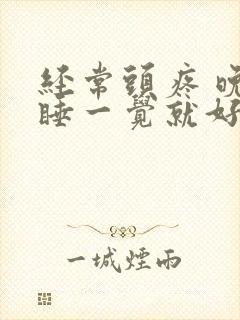 經常頭疼晚
睡一覺就好
一城煙雨